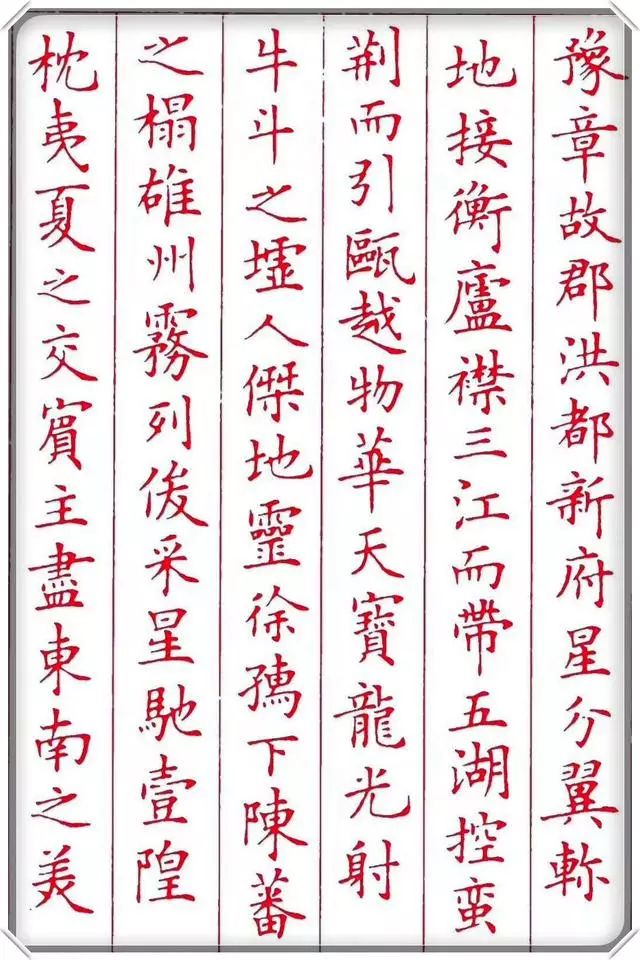 豫章故郡洪都新府星分翼軫
地接衡廬襟三江而帶五湖控蛮
荆而引甌越物華天寶龍光射
牛斗之墟人傑地靈徐孺下陳蕃
之榻雄州霧列俊采星馳臺隍
枕夷夏之交賓主盡東南之美